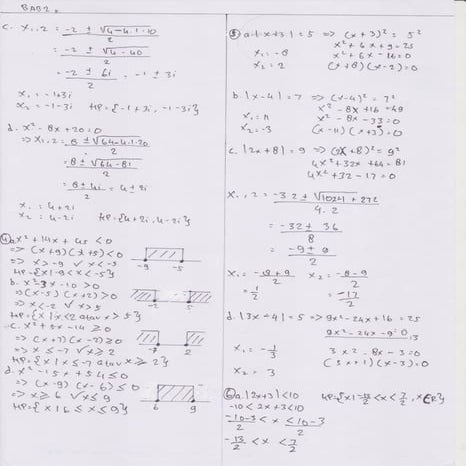 BAB 2
c. x₁,₂ = -2 ± √4-4.1.10
2
= -2 ± √4-40
2
= -2 ± 6i = -1 ± 3i
2
x₁ = -1+3i
x₂ = -1-3i HP = {-1+3i, -1-3i}
d. x² - 8x + 20 = 0
=> x₁,₂ = 8 ± √64-4.1.20
2
= 8 ± √64-81
2
= 8 ± 4i = 4 ± 2i
2
x₁ = 4+2i
x₂ = 4-2i HP = {4+2i, 4-2i}
④ a. x² + 14x + 45 < 0
=> (x+9)(x+5) < 0
=> x > -9 ∨ x < -5
HP = {x | -9 < x < -5}
-9 -5
b. x² - 3x - 10 > 0
=> (x-5)(x+2) > 0
=> x < -2 ∨ x > 5
HP = {x | x < -2 atau x > 5}
-2 5
c. x² + 5x - 14 ≥ 0
=> (x+7)(x-2) ≥ 0
=> x ≤ -7 ∨ x ≥ 2
HP = {x | x ≤ -7 atau x ≥ 2}
-7 2
d. x² - 15x + 54 ≤ 0
=> (x-9)(x-6) ≤ 0
=> x ≥ 6 ∨ x ≤ 9
HP = {x | 6 ≤ x ≤ 9}
6 9
⑤ a. |x+3| = 5 => (x+3)² = 5²
x² + 6x + 9 = 25
x₁ = -8 x² + 6x - 16 = 0
x₂ = 2 (x+8)(x-2) = 0
b. |x-4| = 7 => (x-4)² = 7²
x² - 8x + 16 = 49
x₁ = 11 x² - 8x - 33 = 0
x₂ = -3 (x-11)(x+3) = 0
c. |2x+8| = 9 => (2x+8)² = 9²
4x² + 32x + 64 = 81
4x² + 32 - 17 = 0
x₁,₂ = -32 ± √1024 + 272
4.2
= -32 ± 36
8
= -8 ± 9
2
x₁ = -8+9 x₂ = -8-9
2 2
= 1/2 = -17/2
d. |3x-4| = 5 => 9x² - 24x + 16 = 25
9x² - 24x - 9 = 0 :3
x₁ = -1/3 3x² - 8x - 3 = 0
x₂ = 3 (3x+1)(x-3) = 0
⑥ a. |2x+3| < 10 HP = {x | -13/2 < x < 7/2, x ∈ R}
-10 < 2x+3 < 10
-10-3 < x < 10-3
2 2
-13/2 < x < 7/2